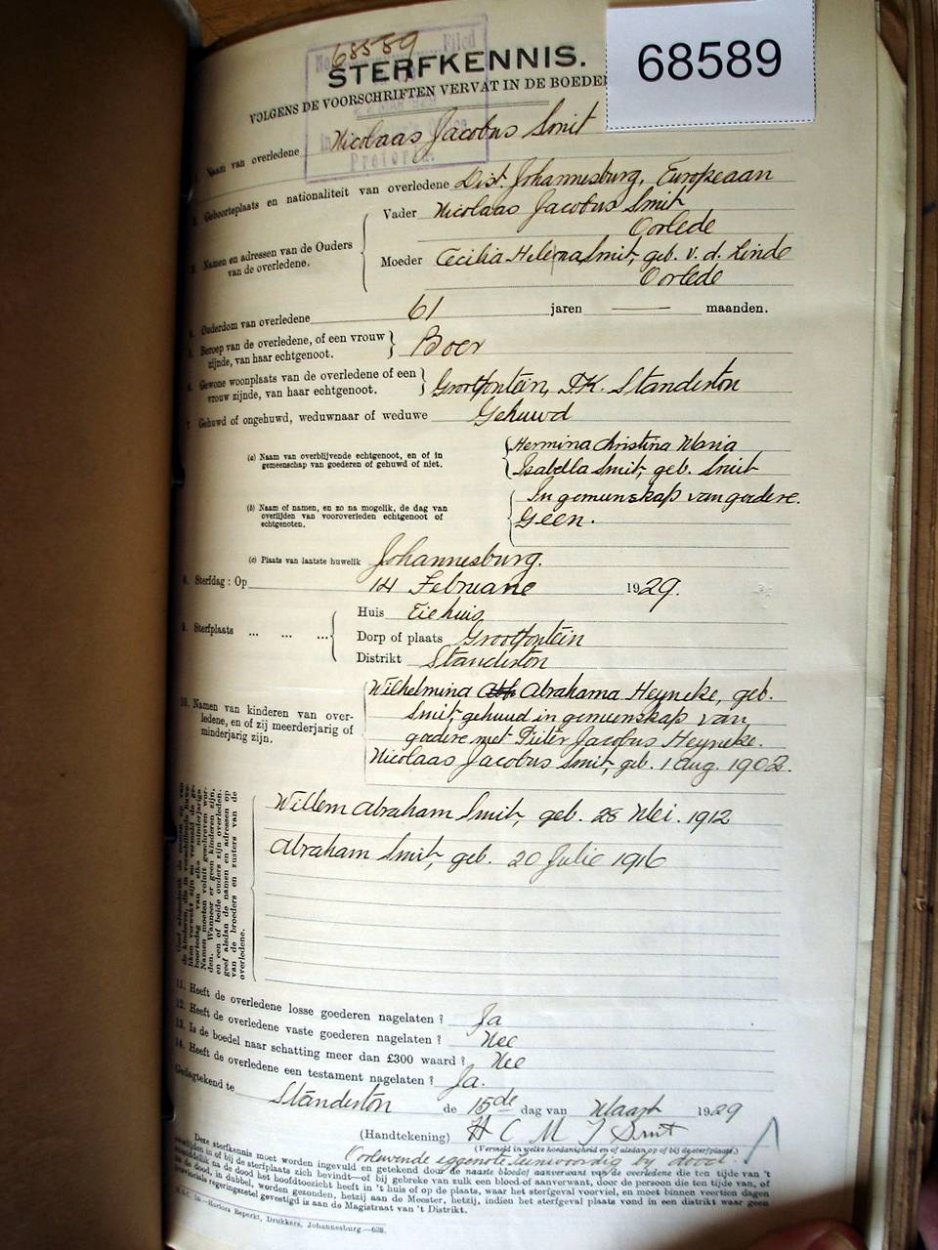 68589
68589 Filed
STERFKENNIS.
VOLGENS DE VOORSCHRIFTEN VERVAT IN DE
Pretoria.
Naam van overledene Nicolaas Jacobus Smit
2. Geboorteplaats en nationaliteit van overledene Dist. Johannesburg, Europeaan
3. Namen en adressen van de Ouders van de overledene.
Vader Nicolaas Jacobus Smit
Oorlede
Moeder Cecilia Helena Smit, geb. v. d. Linde
Oorlede
4. Ouderdom van overledene 61 jaren — maanden.
5. Beroep van de overledene, of een vrouw
zijnde, van haar echtgenoot. Boer
6. Gewone woonplaats van de overledene of een
vrouw zijnde, van haar echtgenoot. Grootfontein, P.K. Standerton
7. Gehuwd of ongehuwd, weduwnaar of weduwe Gehuwd
(a) Naam van overblijvende echtgenoot, en of in
gemeenschap van goederen of gehuwd of niet.
Hermina Christina Maria
Isabella Smit, geb. Smit
In gemeenskap van goedere.
(b) Naam of namen, en zo na mogelik, de dag van
overlijden van vooroverleden echtgenoot of
echtgenoten.
Geen.
(c) Plaats van laatste huwelik Johannesburg.
8. Sterfdag : Op 14 Februarie 1929.
9. Sterfplaats ... ... ...
Huis Eie huis
Dorp of plaats Grootfontein
Distrikt Standerton
10. Namen van kinderen van over-
ledene, en of zij meerderjarig of
minderjarig zijn.
Wilhelmina Abrahama Heyneke, geb.
Smit, gehuud in gemeenskap van
goedere met Pieter Jacobus Heyneke.
Nicolaas Jacobus Smit, geb. 1 Aug. 1902.
Willem Abraham Smit, geb. 28 Mei. 1912
Abraham Smit, geb. 20 Julie 1916
Namen moeten voluit geschreven wor-
den. Wanneer er geen kinderen zijn,
en een of beide ouders zijn overleden,
geef alsdan de namen en adressen op
van de broeders en zusters van de
overledene.
11. Heeft de overledene losse goederen nagelaten ? Ja
12. Heeft de overledene vaste goederen nagelaten ? Nee
13. Is de boedel naar schatting meer dan £300 waard ? Nee
14. Heeft de overledene een testament nagelaten ? Ja.
Gedagtekend te Standerton de 15de dag van Maart 1929
(Handtekening) H C M I Smit
(Vermeld in welke hoedanigheid en of alsdan op of bij de sterfplaats.)
Deze sterfkennis moet worden ingevuld en getekend door de naaste bloed of aanverwant van de overledene die ten tijde van 't
overlijden in of bij de sterfplaats zich bevindt—of bij gebreke van zulk een bloed of aanverwant, door de persoon die ten tijde van, of
onmiddellik na de dood het hoofdtoezicht heeft in 't huis of op de plaats, waar het sterfgeval voorviel, en moet binnen veertien dagen
na de dood, in dubbel, worden gezonden, hetzij aan de Meester, hetzij, indien het sterfgeval plaats vond in een distrikt waar geen
provinciale regeringszetel gevestigd is aan de Magistraat van 't Distrikt.
Hortors Beperkt, Drukkers, Johannesburg